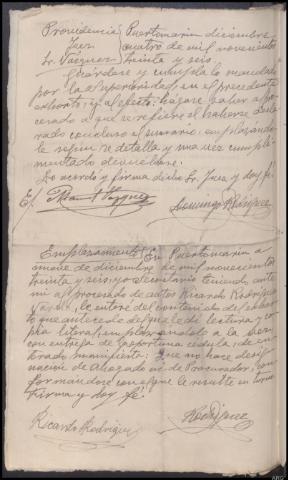 Providencia Puertomarin diciembre
Juez cuatro de mil novecientos
Sr. Vazquez treinta y seis
Guárdese y cumpla lo mandado
por la Superioridad en el precedente
exhorto; y al efecto, hágase saber al pro-
cesado a que se refiere el haberse decla-
rado concluso el sumario, emplazándo-
le según se detalla y una vez cumpli-
mentado devuélvase.
Lo acordó y firma dicho Sr. Juez y doy fé.
Vazquez
Domingo
Emplazamiento. En Puertomarin a
once de diciembre de mil novecientos
treinta y seis; yo Secretario teniendo ante
mi al procesado de autos Ricardo Rodríguez
le enteré del contenido del exhorto
que antecede del que le dí lectura y co-
pia literal, emplazándole a la vez
con entrega de la oportuna cédula; de en-
terado manifiesta: Que no hace desig-
nación de Abogado ni de Procurador, con-
formándose con el que le resulte en turno
Firma y doy fé.
Ricardo Rodríguez